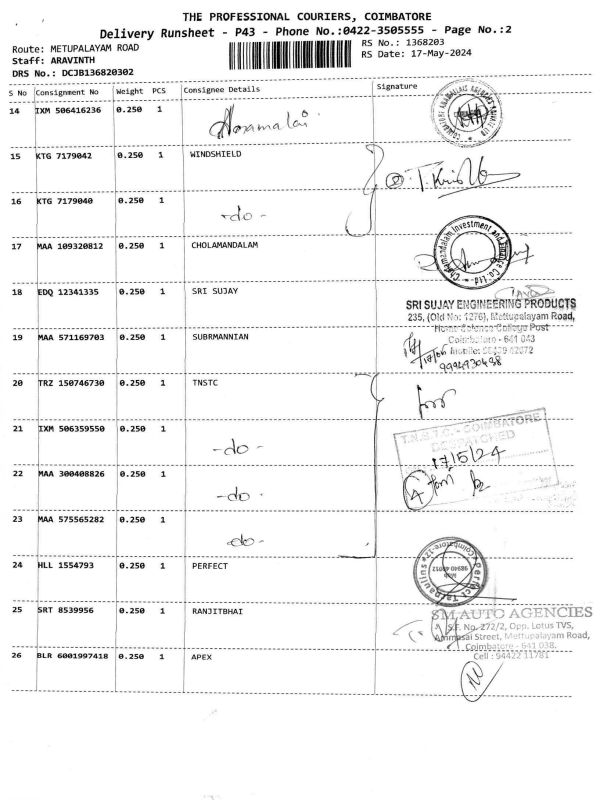 THE PROFESSIONAL COURIERS, COIMBATORE
Delivery Runsheet - P43 - Phone No.:0422-3505555 - Page No.:2
Route: METUPALAYAM ROAD
RS No.: 1368203
Staff: ARAVINTH
RS Date: 17-May-2024
DRS No.: DCJB136820302
S No Consignment No Weight PCS Consignee Details Signature
14 IXM 506416236 0.250 1
15 KTG 7179042 0.250 1 WINDSHIELD
16 KTG 7179040 0.250 1 -do-
17 MAA 109320812 0.250 1 CHOLAMANDALAM
Cholamandalam Investment and Finance Co. Ltd.
18 EDQ 12341335 0.250 1 SRI SUJAY
SRI SUJAY ENGINEERING PRODUCTS
235, (Old No: 1276), Mettupalayam Road,
Home Science College Post
19 MAA 571169703 0.250 1 SUBRMANNIAN
Coimbatore - 641 043
Mobile:
17/05
9994930438
20 TRZ 150746730 0.250 1 TNSTC
21 IXM 506359550 0.250 1 -do-
T.N.S.T.C. - COIMBATORE
DESPATCHED
17/5/24
22 MAA 300408826 0.250 1 -do-
23 MAA 575565282 0.250 1 -do-
24 HLL 1554793 0.250 1 PERFECT
Perfect Tarpaulins * Coimbatore-12 *
Mob
25 SRT 8539956 0.250 1 RANJITBHAI
SM AUTO AGENCIES
S.F. No. 272/2, Opp. Lotus TVS,
Ammasai Street, Mettupalayam Road,
Coimbatore - 641 038.
Cell : 94422 11781
26 BLR 6001997418 0.250 1 APEX